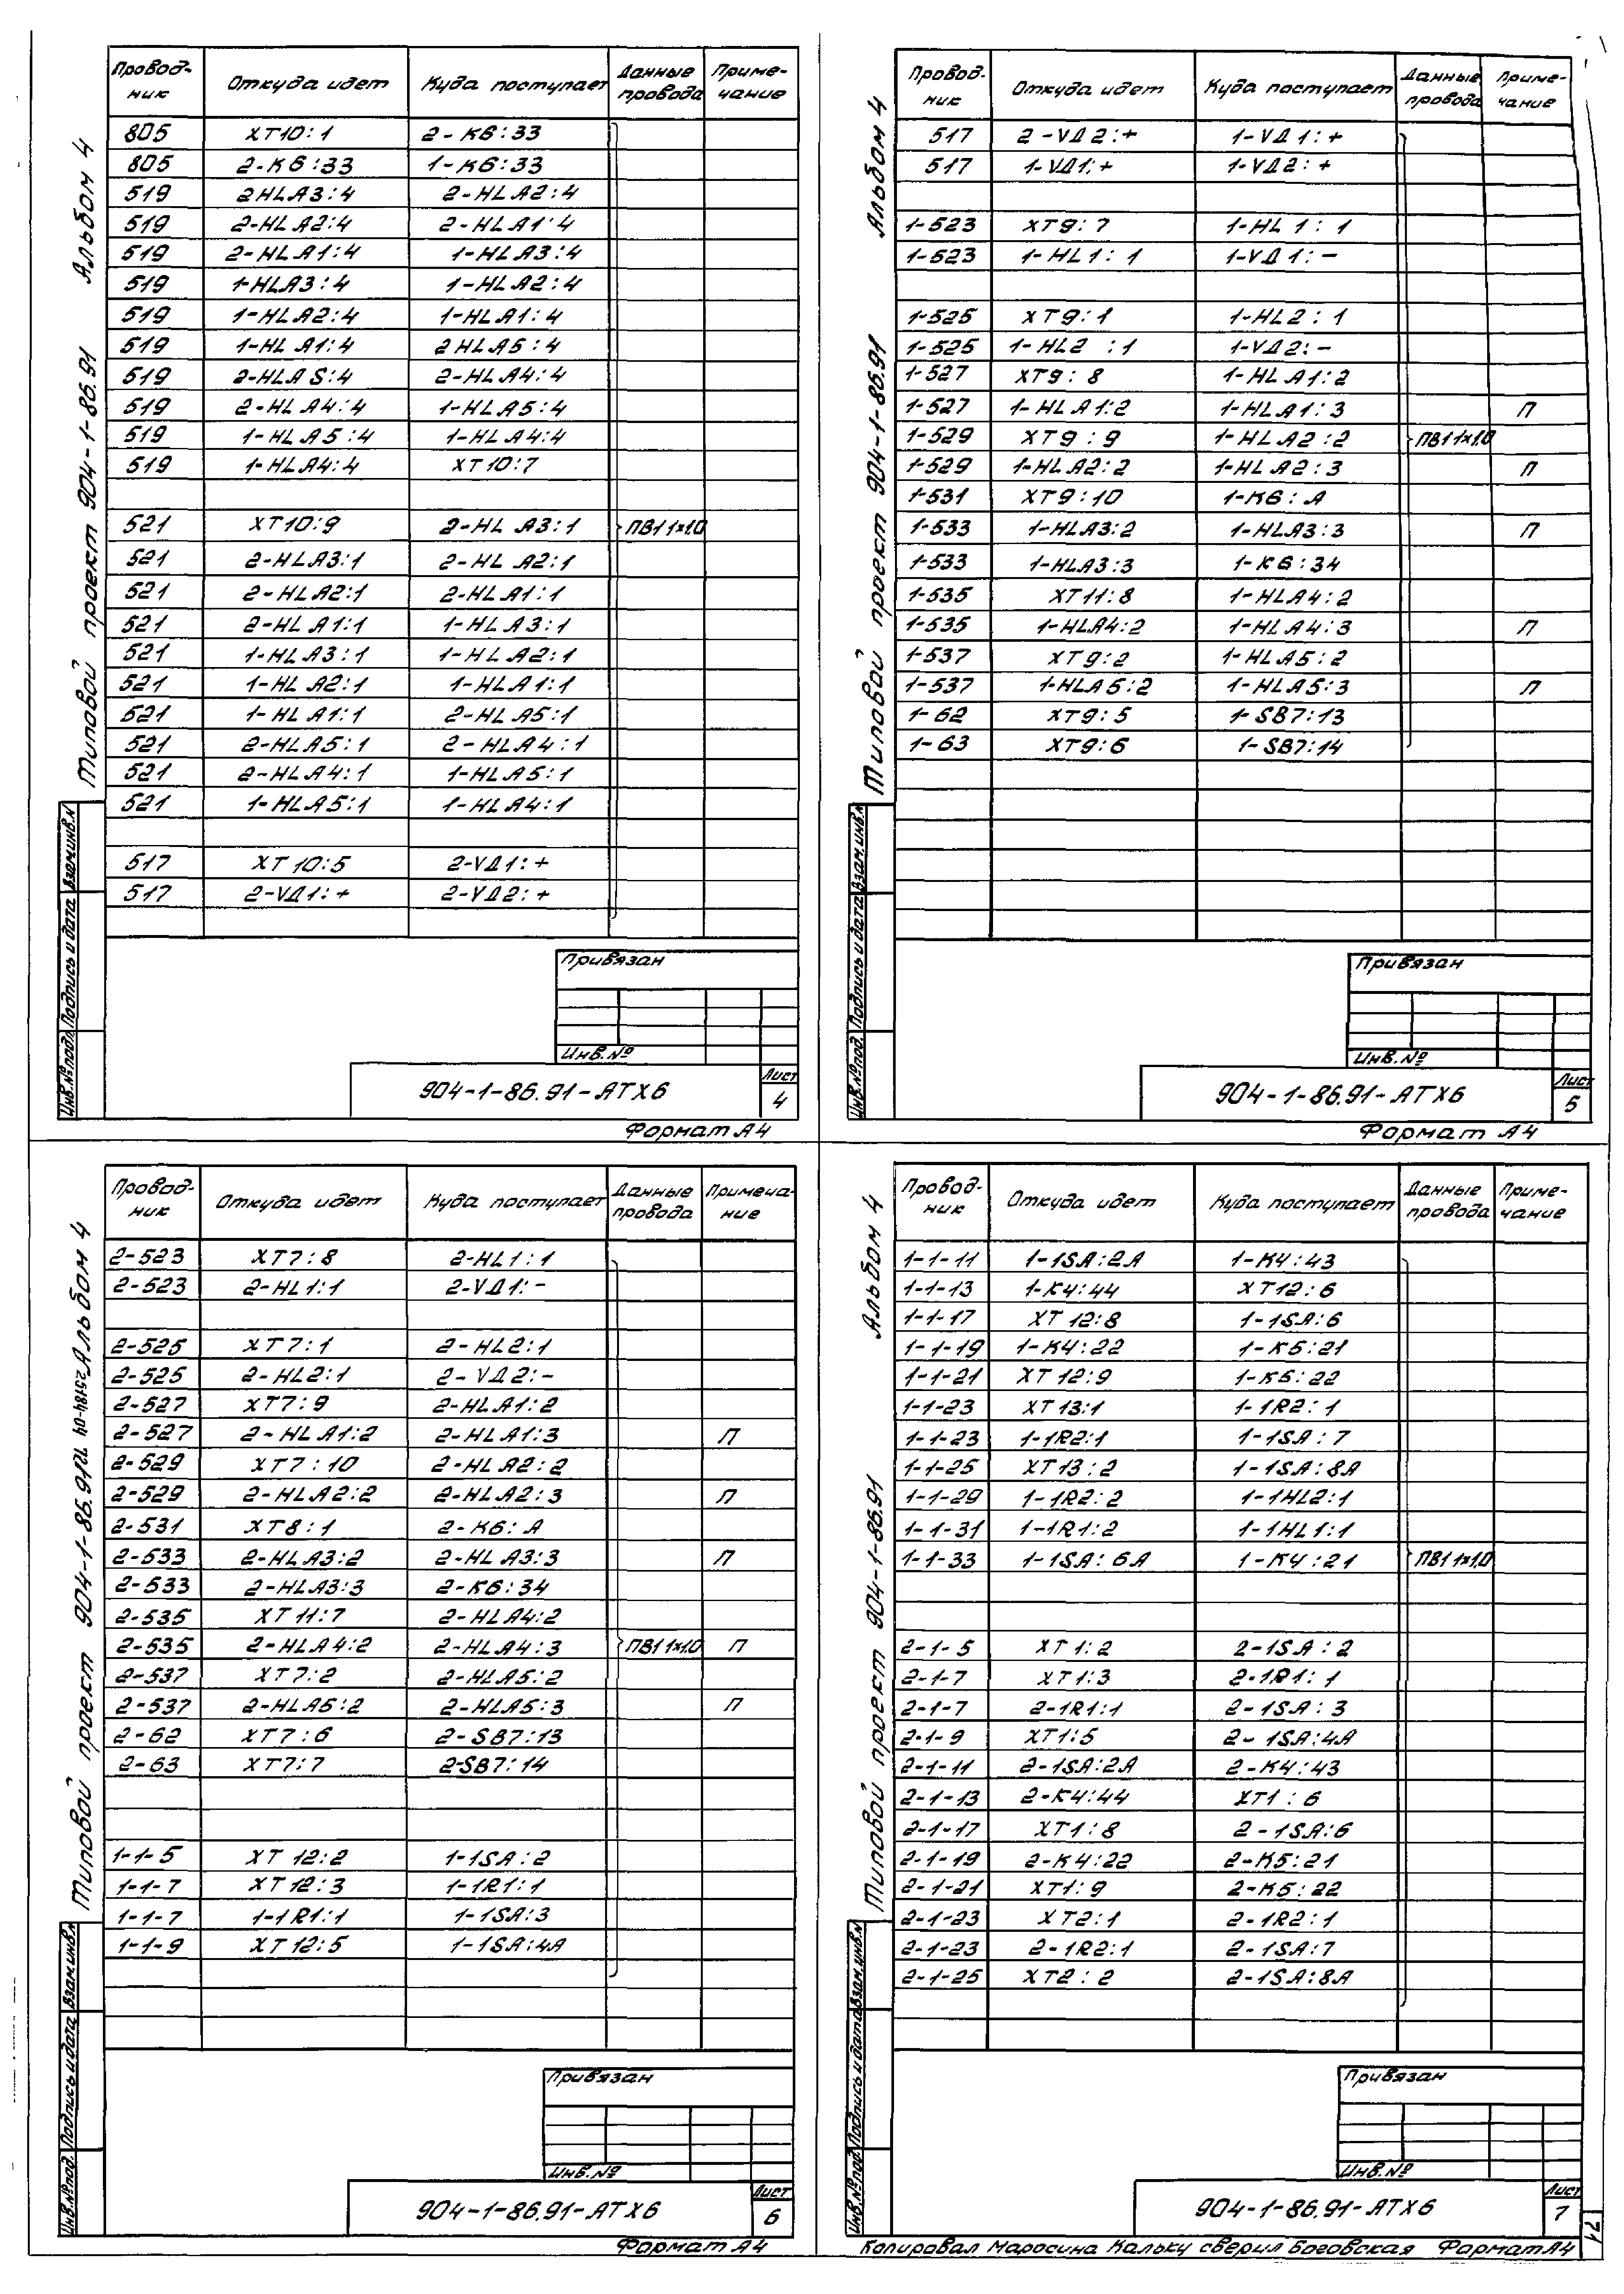 Альбом 4
Типовой проект 904-1-86.91
Провод-ник Откуда идет Куда поступает Данные провода Приме-чание
805 XT10:1 2-К6:33
805 2-К6:33 1-К6:33
519 2HLA3:4 2-HLA2:4
519 2-HLA2:4 2-HLA1:4
519 2-HLA1:4 1-HLA3:4
519 1-HLA3:4 1-HLA2:4
519 1-HLA2:4 1-HLA1:4
519 1-HLA1:4 2HLA5:4
519 2-HLA5:4 2-HLA4:4
519 2-HLA4:4 1-HLA5:4
519 1-HLA5:4 1-HLA4:4
519 1-HLA4:4 XT10:7
521 XT10:9 2-HLA3:1 ПВ1 1×1,0
521 2-HLA3:1 2-HLA2:1
521 2-HLA2:1 2-HLA1:1
521 2-HLA1:1 1-HLA3:1
521 1-HLA3:1 1-HLA2:1
521 1-HLA2:1 1-HLA1:1
521 1-HLA1:1 2-HLA5:1
521 2-HLA5:1 2-HLA4:1
521 2-HLA4:1 1-HLA5:1
521 1-HLA5:1 1-HLA4:1
517 XT10:5 2-VД1:+
517 2-VД1:+ 2-VД2:+
Инв.№подл. Подпись и дата Взам.инв.№
Привязан
Инв.№
904-1-86.91-АТХ6
Лист
4
Формат А4
Альбом 4
Типовой проект 904-1-86.91
Провод-ник Откуда идет Куда поступает Данные провода Приме-чание
517 2-VД2:+ 1-VД1:+
517 1-VД1:+ 1-VД2:+
1-523 XT9:7 1-HL1:1
1-523 1-HL1:1 1-VД1:-
1-525 XT9:1 1-HL2:1
1-525 1-HL2:1 1-VД2:-
1-527 XT9:8 1-HLA1:2
1-527 1-HLA1:2 1-HLA1:3 П
1-529 XT9:9 1-HLA2:2 ПВ1 1×1,0
1-529 1-HLA2:2 1-HLA2:3 П
1-531 XT9:10 1-К6:А
1-533 1-HLA3:2 1-HLA3:3 П
1-533 1-HLA3:3 1-К6:34
1-535 XT11:8 1-HLA4:2
1-535 1-HLA4:2 1-HLA4:3 П
1-537 XT9:2 1-HLA5:2
1-537 1-HLA5:2 1-HLA5:3 П
1-62 XT9:5 1-SB7:13
1-63 XT9:6 1-SB7:14
Инв.№под. Подпись и дата Взам.инв.№
Привязан
Инв.№
904-1-86.91-АТХ6
Лист
5
Формат А4
Типовой проект 904-1-86.91 25184-04 Альбом 4
Провод-ник Откуда идет Куда поступает Данные провода Примеча-ние
2-523 XT7:8 2-HL1:1
2-523 2-HL1:1 2-VД1:-
2-525 XT7:1 2-HL2:1
2-525 2-HL2:1 2-VД2:-
2-527 XT7:9 2-HLA1:2
2-527 2-HLA1:2 2-HLA1:3 П
2-529 XT7:10 2-HLA2:2
2-529 2-HLA2:2 2-HLA2:3 П
2-531 XT8:1 2-К6:А
2-533 2-HLA3:2 2-HLA3:3 П
2-533 2-HLA3:3 2-К6:34
2-535 XT11:7 2-HLA4:2
2-535 2-HLA4:2 2-HLA4:3 ПВ1 1×1,0 П
2-537 XT7:2 2-HLA5:2
2-537 2-HLA5:2 2-HLA5:3 П
2-62 XT7:6 2-SB7:13
2-63 XT7:7 2-SB7:14
1-1-5 XT12:2 1-1SA:2
1-1-7 XT12:3 1-1R1:1
1-1-7 1-1R1:1 1-1SA:3
1-1-9 XT12:5 1-1SA:4A
Инв.№под. Подпись и дата Взам.инв.№
Привязан
Инв.№
904-1-86.91-АТХ6
Лист
6
Формат А4
Альбом 4
Типовой проект 904-1-86.91
Провод-ник Откуда идет Куда поступает Данные провода Приме-чание
1-1-11 1-1SA:2A 1-К4:43
1-1-13 1-К4:44 XT12:6
1-1-17 XT12:8 1-1SA:6
1-1-19 1-К4:22 1-К5:21
1-1-21 XT12:9 1-К5:22
1-1-23 XT13:1 1-1R2:1
1-1-23 1-1R2:1 1-1SA:7
1-1-25 XT13:2 1-1SA:8A
1-1-29 1-1R2:2 1-1HL2:1
1-1-31 1-1R1:2 1-1HL1:1
1-1-33 1-1SA:6A 1-К4:21 ПВ1 1×1,0
2-1-5 XT1:2 2-1SA:2
2-1-7 XT1:3 2-1R1:1
2-1-7 2-1R1:1 2-1SA:3
2-1-9 XT1:5 2-1SA:4A
2-1-11 2-1SA:2A 2-К4:43
2-1-13 2-К4:44 XT1:6
2-1-17 XT1:8 2-1SA:6
2-1-19 2-К4:22 2-К5:21
2-1-21 XT1:9 2-К5:22
2-1-23 XT2:1 2-1R2:1
2-1-23 2-1R2:1 2-1SA:7
2-1-25 XT2:2 2-1SA:8A
Инв.№под. Подпись и дата Взам.инв.№
Привязан
Инв.№
904-1-86.91-АТХ6
Лист
7
71
Копировал Маросина Кальку сверил Боговская Формат А4